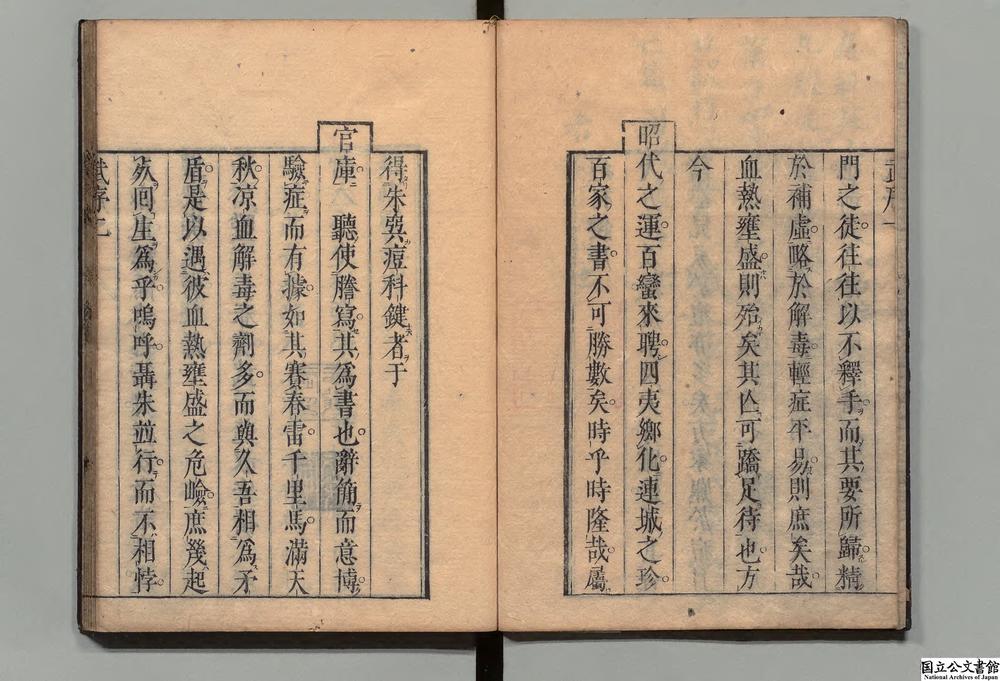 門之徒往往以不釋手而其要所歸精
於補虛略於解毒輕症平易則庶矣哉
血熱壅盛則殆矣其亾可蹻足待也方
今
昭代之運百蠻來聘四夷鄉化連城之珍
百家之書不可勝數矣時乎時隆哉屬
得朱巽痘科鍵者于
官庫聽使謄寫其爲書也辭簡而意博
驗症而有據如其賽春雷千里馬滿天
秋凉血解毒之劑多而與久吾相爲矛
盾是以遇彼血熱壅盛之危嶮庶幾起
死回生爲乎嗚呼聶朱竝行而不相悖
序二
国立公文書館
National Archives of Japan